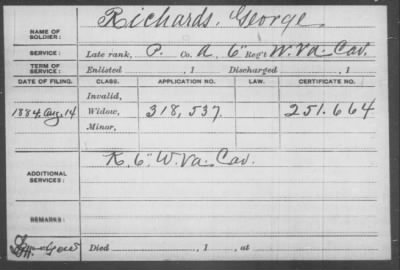 NAME OF SOLDIER: Richards, George
SERVICE: Late rank, P. Co. A, 6" Reg't W. Va. Cav.
TERM OF SERVICE: Enlisted , 1 Discharged , 1
DATE OF FILING. CLASS. APPLICATION NO. LAW. CERTIFICATE NO.
Invalid,
1884. Aug. 14 Widow, 318,537. 251.664
Minor,
ADDITIONAL SERVICES: K. 6" W. Va. Cav.
REMARKS:
Died , 1 , at